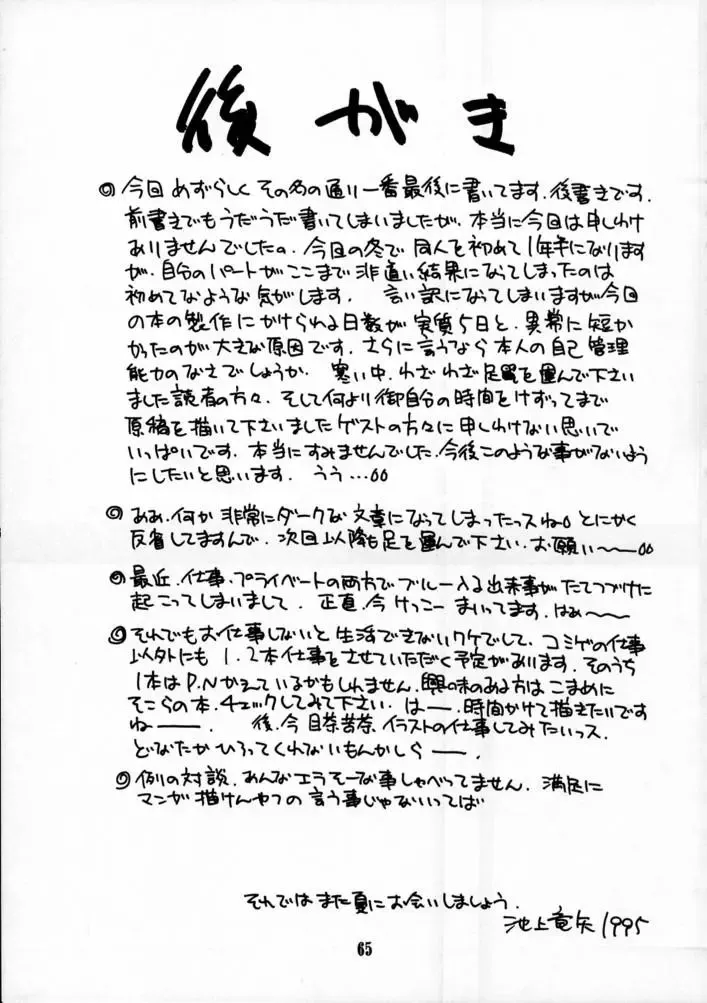 後がき
◎今回めずらしくその名の通り一番最後に書いてます.後書きです.
前書きでもうだうだ書いてしまいましたが.本当に今回は申しわけ
ありませんでしたの.今回の冬で同人を初めて1年半になります
が.自分のパートがここまで非道い結果になってしまったのは
初めてなような気がします. 言い訳になってしまいますが今回
の本の製作にかけられる日数が実質5日と.異常に短か
かったのが大きな原因です.さらに言うなら本人の自己管理
能力のなさでしょうか. 寒い中.わざわざ足を運んで下さい
ました読者の方々.そして何より御自分の時間をけずってまで
原稿を描いて下さいましたゲストの方々に申しわけない思いで
いっぱいです.本当にすみませんでした.今後このような事がないよう
にしたいと思います. うう…。。
◎ああ.何か非常にダークな文章になってしまったっスね。とにかく
反省してますんで.次回以降も足を運んで下さい.お願い〜〜。。
◎最近.仕事.プライベートの両方でブルー入る出来事がたてつづけに
起こってしまいまして. 正直.今けっこーまいってます.はぁ〜〜
◎それでもお仕事しないと生活できないワケでして.コミケの仕事
以外にも1.2本仕事をさせていただく予定があります.そのうち
1本はP.Nかえているかもしれません.興味のある方はこまめに
そこらの本.チェックしてみて下さい. はー.時間かけて描きたいです
ねー. 後.今目茶苦茶イラストの仕事してみたいっス.
どなたかひろってくれないもんかしらー.
◎例の対談.あんなエラそーな事しゃべってません.満足に
マンガ描けんヤツの言う事じゃないってば
それではまた夏にお会いしましょう.
池上竜矢1995
65